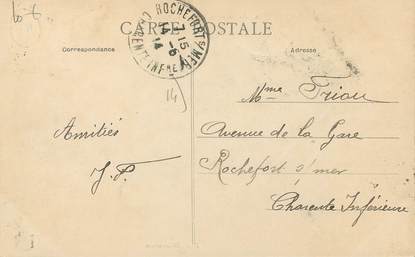 CARTE POSTALE
ROCHEFORT S/ MER
7 15
14 -6
14
CHARENTE INFRE
Correspondance
Adresse
14
Mme Triou
Avenue de la Gare
Rochefort s/ mer
Charente Inférieure
Amitiés
J. P.